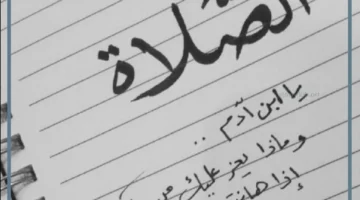 الصَّلاة
يا ابن آدَم ..
وماذا يعز عليك من
إذا هانت